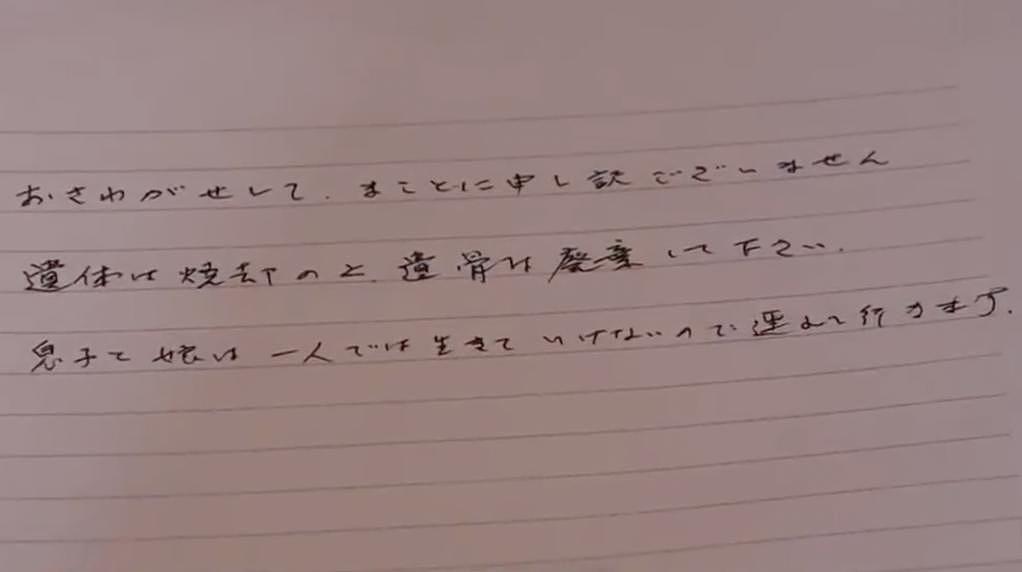 おさわがせして、まことに申し訳ございません
遺体は焼却のと、遺骨は廃棄して下さい.
息子と娘は一人では生きていけないので連れて行きます.